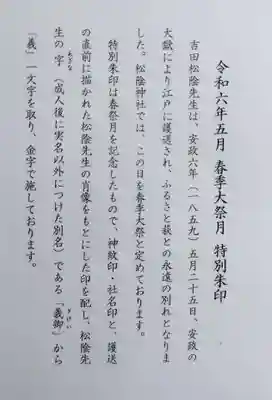 令和六年五月 春季大祭月 特別朱印
吉田松陰先生は、安政六年(一八五九)五月二十五日、安政の
大獄により江戸に護送され、ふるさと萩との永遠の別れとなりま
した。松陰神社では、この日を春季大祭と定めております。
特別朱印は春祭月を記念したもので、神紋印・社名印と、護送
の直前に描かれた松陰先生の肖像をもとにした印を配し、松陰先
生の字(成人後に実名以外につけた別名)である「義卿」から
あざな
ぎけい
「義」一文字を取り、金字で施しております。